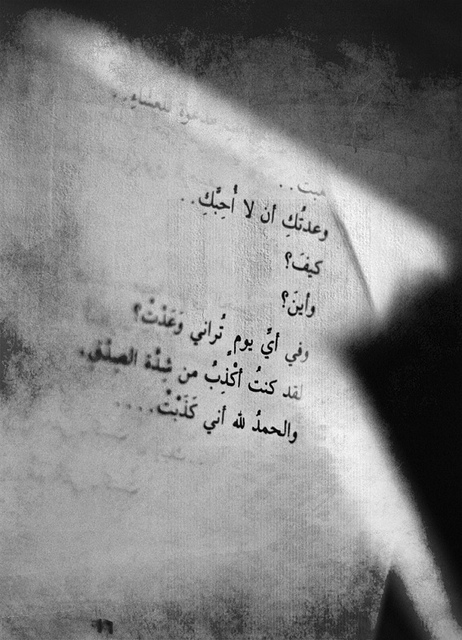 للعشاءِ..
وعدتُكِ أن لا أُحِبَّكِ..
كيفَ؟
وأينَ؟
وفي أيِّ يومٍ تُراني وَعَدْتْ؟
لقد كنتُ أكْذِبُ من شِدَّة الصِدْقِ،
والحمدُ لله أني كَذَبْتْ....